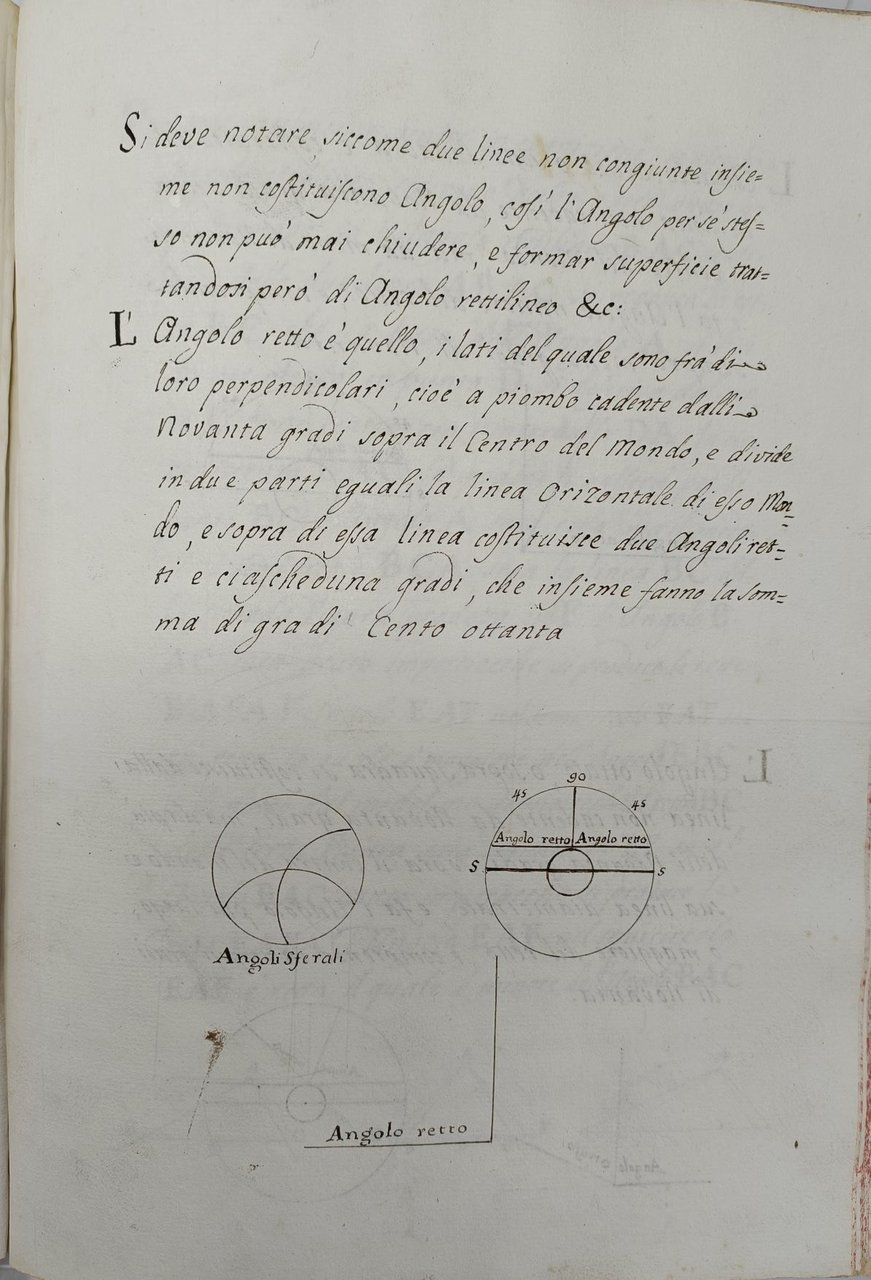 Si deve notare, siccome due linee non congiunte insie=
me non costituiscono Angolo, così l'Angolo per sè stes=
so non può mai chiudere, e formar superficie trat=
tandosi però di Angolo rettilineo &c:
L'Angolo retto è quello, i lati del quale sono frà di
loro perpendicolari, cioè a piombo cadente dalli
Novanta gradi sopra il Centro del Mondo, e divide
in due parti eguali la linea Orizontale di esso Mon=
do, e sopra di essa linea costituisce due Angoli ret=
ti e ciascheduna gradi, che insieme fanno la som=
ma di gradi Cento ottanta
90
45 45
Angolo retto Angolo retto
S S
Angoli Sferali
Angolo retto